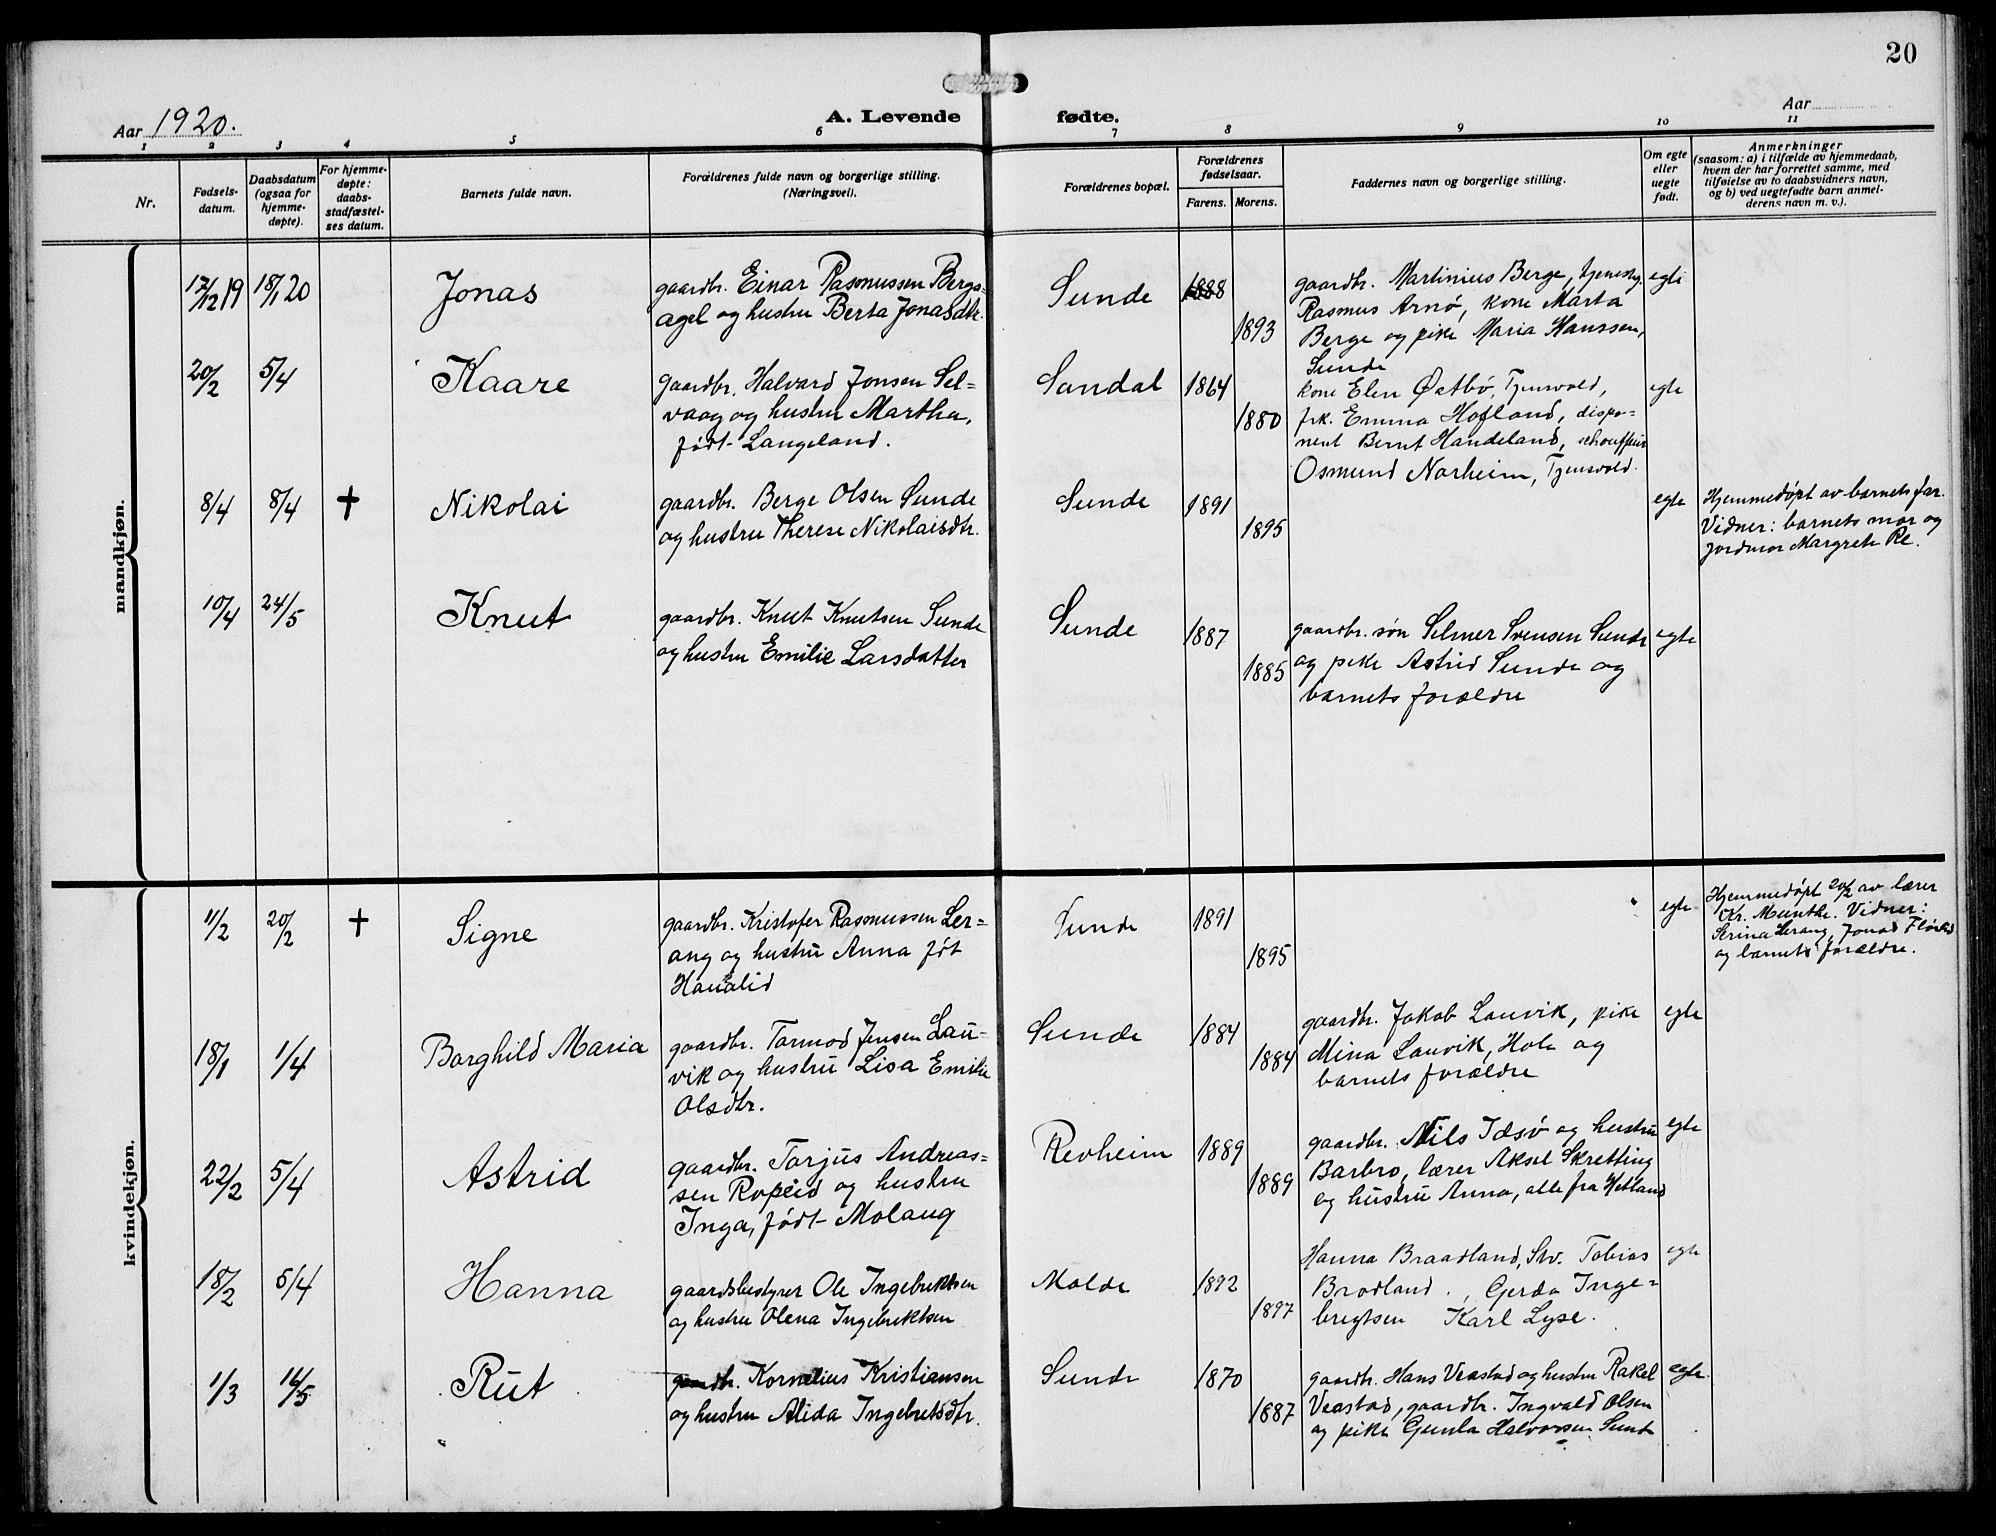 20
Aar 1920.
A. Levende fødte.
Aar
1 2 3 4 5 6 7 8 9 10 11
Nr.
Fødsels-
datum.
Daabsdatum
(ogsaa for
hjemme-
døpte).
For hjemme-
døpte:
daabs-
stadfæstel-
ses datum.
Barnets fulde navn.
Forældrenes fulde navn og borgerlige stilling.
(Næringsvei).
Forældrenes bopæl.
Forældrenes
fødselsaar.
Farens. Morens.
Faddernes navn og borgerlige stilling.
Om egte
eller
uegte
født.
Anmerkninger
(saasom: a) i tilfælde av hjemmedaab,
hvem der har forrettet samme, med
tilføielse av to daabsvidners navn,
og b) ved uegtefødte barn anmel-
derens navn m. v.).
mandkjøn.
17/12 19 18/1 20 Jonas
gaardbr. Einar Rasmussen Bergs=
agel og hustru Berta Jonasdtr.
Sunde 1888
1893
gaardbr. Martinius Berge,
Rasmus Arnø, kone Marta
Berge og pike Maria Hanssen,
Sunde
egte
20/2 5/4 Kaare
gaardbr. Halvard Jonsen Sel=
vaag og hustru Martha,
født Langeland.
Sandal 1864
1880
kone Elen Østbø, Tjensvold,
frk. Emma Hofland, dispo=
nent Bernt Handeland,
Osmund Norheim, Tjensvold.
egte
8/4 8/4 † Nikolai
gaardbr. Berge Olsen Sunde
og hustru Therese Nikolaisdtr.
Sunde 1891
1895
egte
Hjemmedøpt av barnets far.
Vidner: barnets mor og
jordmor Margrete Re.
10/4 24/5 Knut
gaardbr. Knut Knutsen Sunde
og hustru Emilie Larsdatter
Sunde 1887
1885
gaardbr. søn Selmer Svensen Sunde
og pike Astrid Sunde og
barnets forældre
egte
kvindekjøn.
11/2 20/2 † Signe
gaardbr. Kristofer Rasmussen Ler=
ang og hustru Anna født
Haualid
Sunde 1891
1895
egte
Hjemmedøpt 20/2 av lærer
Kr. Munthe. Vidner:
Serina Lerang, Jonas
og barnets forældre.
18/1 1/4 Borghild Maria
gaardbr. Tormod Jensen Lau-
vik og hustru Lisa Emilie
Olsdtr.
Sunde 1884
1884
gaardbr. Jakob Lauvik, pike
Mina Lauvik, Hole og
barnets forældre
egte
22/2 5/4 Astrid
gaardbr. Torjus Andreas=
sen Ropeid og hustru
Inga, født Molaug
Revheim 1889
1889
gaardbr. Nils Idsø og hustru
Barbro, lærer Aksel Skretting
og hustru Anna, alle fra Hetland
egte
18/2 5/4 Hanna
gaardsbestyrer Ole Ingebriktsen
og hustru Olena Ingebriktsen
Molde 1892
1897
Hanna Braadland, Stv. Tobias
Brodland., Gerda Inge=
bregtsen Karl Lyse.
egte
1/3 16/5 Rut
gaardbr. Kornelius Kristiansen
og hustru Alida Ingebretsdtr.
Sunde 1870
1887
gaardbr. Hans Veastad og hustru Rakel
Veastad, gaardbr. Ingvald Olsen
og pike Gunla Halvorsen Sunde
egte.